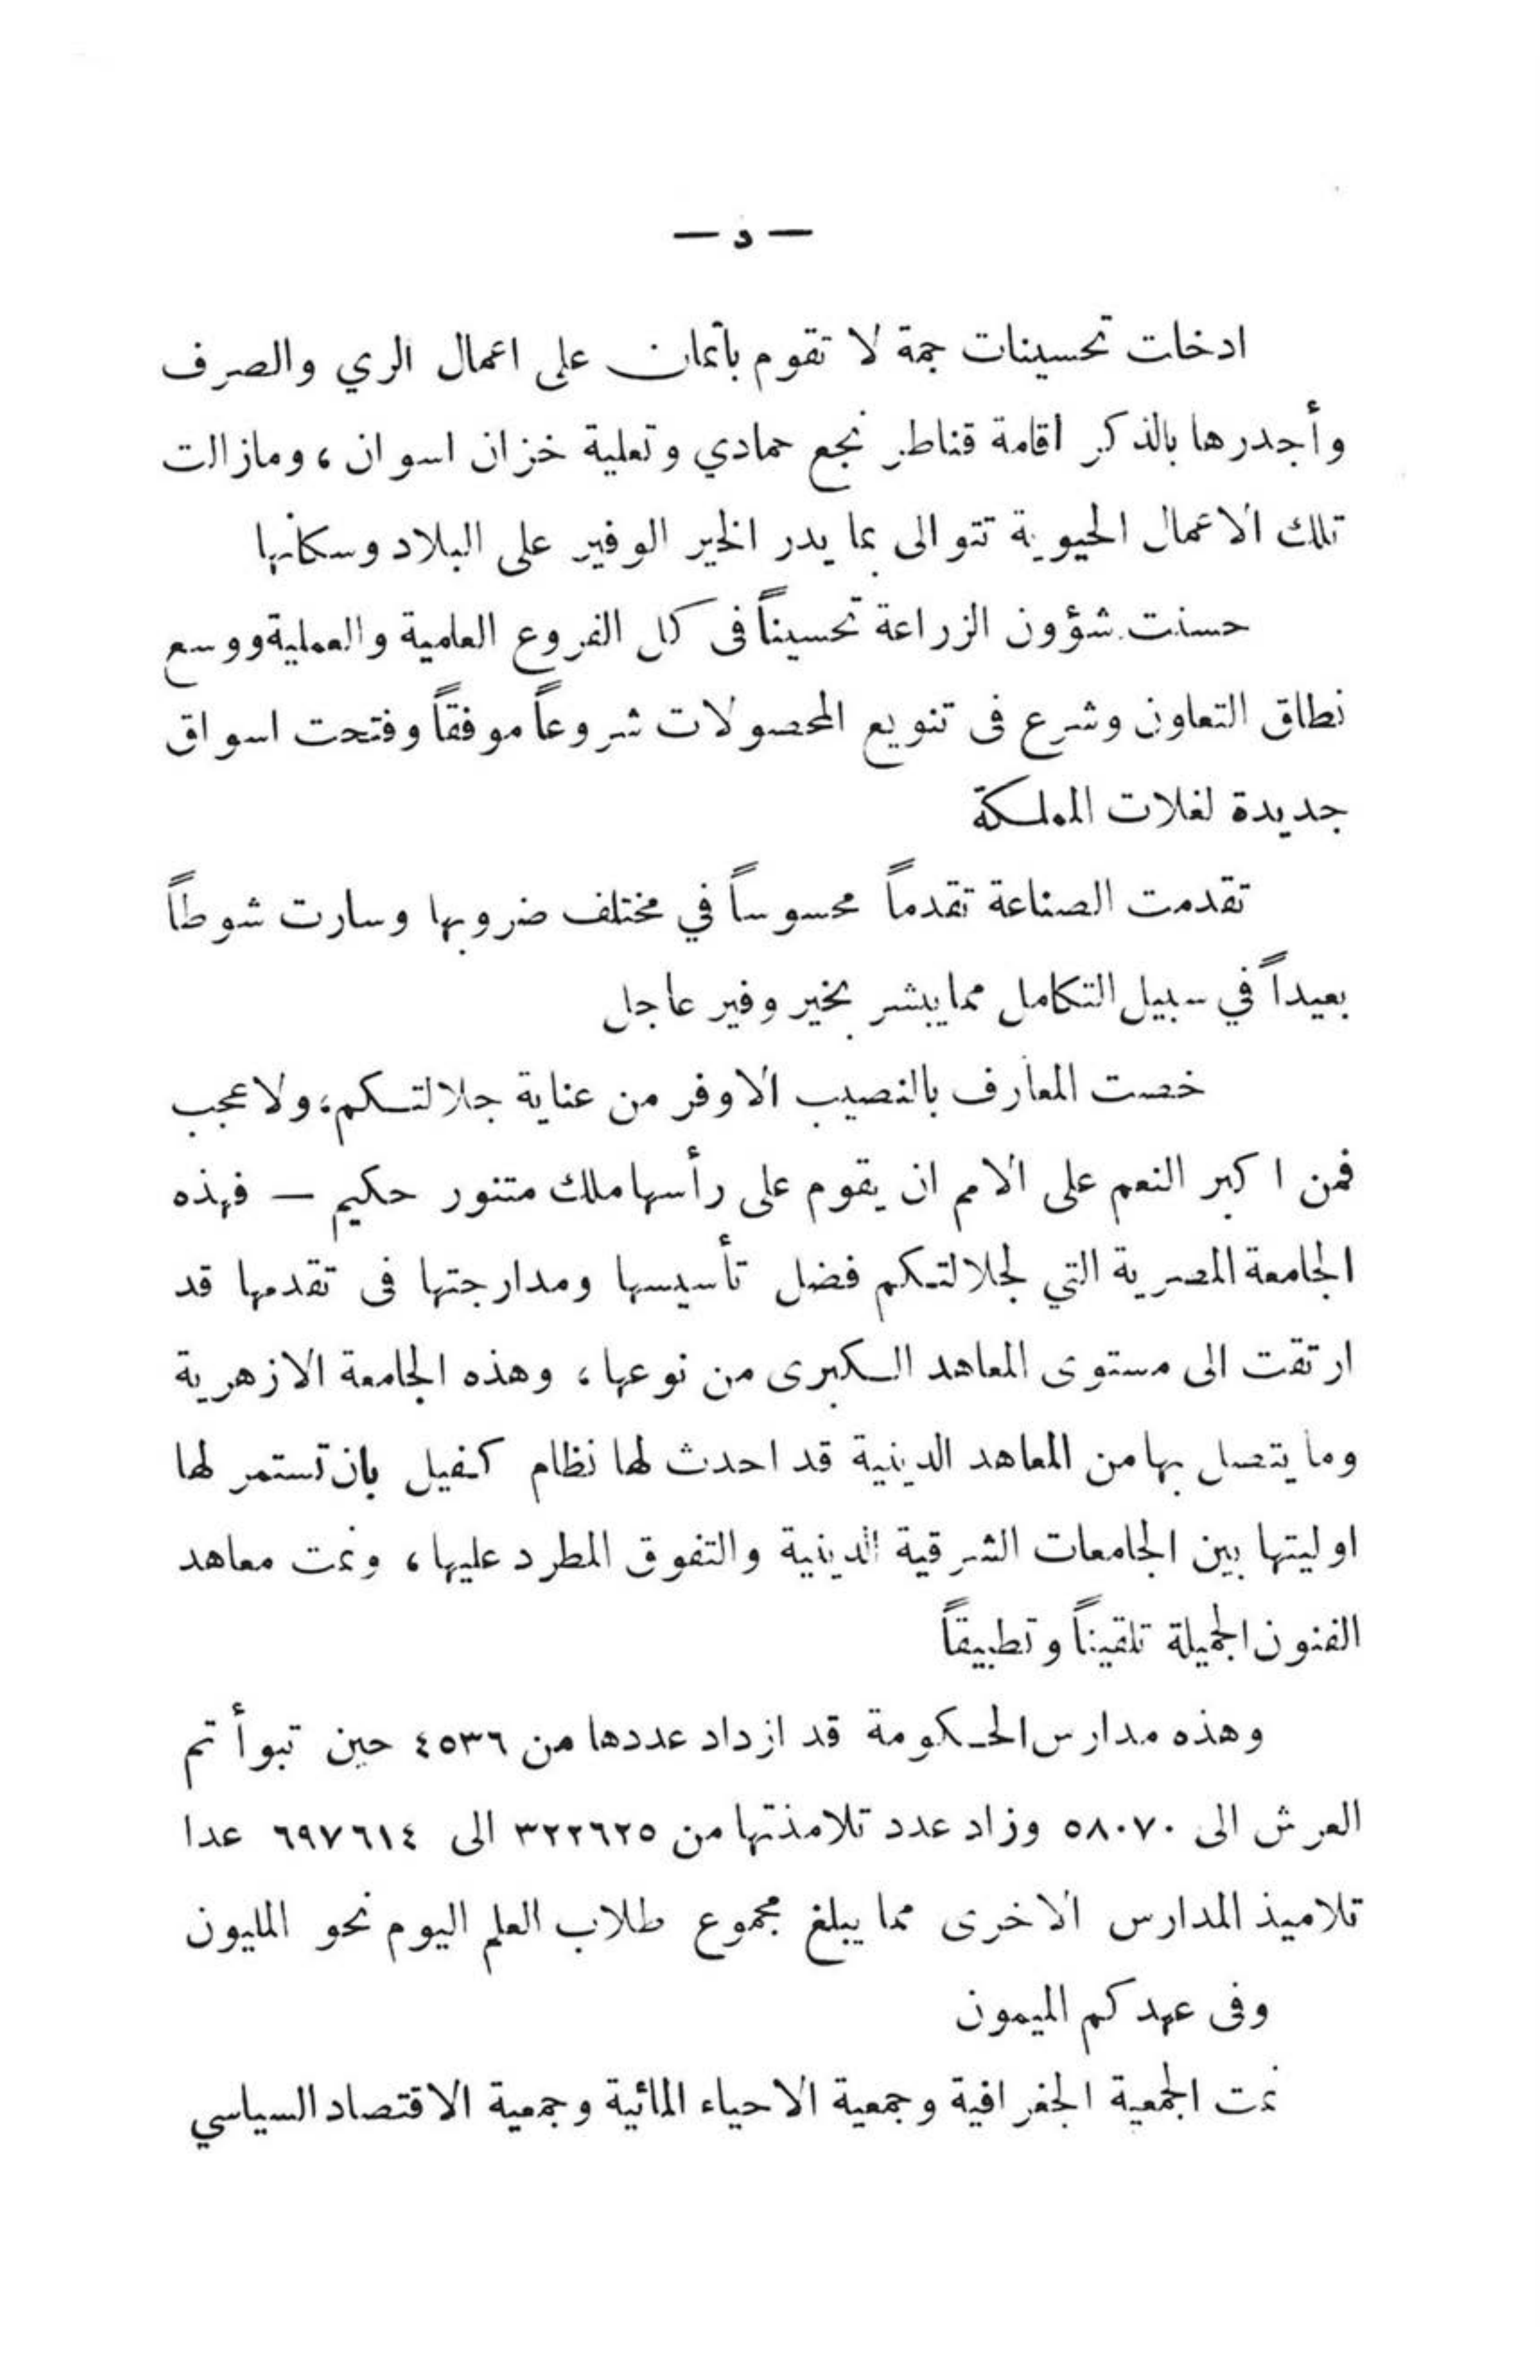 — د —
ادخلت تحسينات جمة لا تقوم باثمان على اعمال الري والصرف
وأجدرها بالذكر اقامة قناطر نجع حمادي وتعلية خزان اسوان ، ومازالت
تلك الاعمال الحيوية تتوالى بما يدر الخير الوفير على البلاد وسكانها
حسنت شؤون الزراعة تحسيناً فى كل الفروع العلمية والعملية ووسع
نطاق التعاون وشرع فى تنويع المحصولات شروعاً موفقاً وفتحت اسواق
جديدة لغلات المملكة
تقدمت الصناعة تقدماً محسوساً في مختلف ضروبها وسارت شوطاً
بعيداً في سبيل التكامل مما يبشر بخير وفير عاجل
خصت المعارف بالنصيب الاوفر من عناية جلالتكم ، ولا عجب
فمن اكبر النعم على الامم ان يقوم على رأسها ملك متنور حكيم — فهذه
الجامعة المصرية التي لجلالتكم فضل تأسيسها ومدارجتها فى تقدمها قد
ارتقت الى مستوى المعاهد الكبرى من نوعها ، وهذه الجامعة الازهرية
وما يتصل بها من المعاهد الدينية قد احدث لها نظام كفيل بان تستمر لها
اوليتها بين الجامعات الشرقية الدينية والتفوق المطرد عليها ، ونمت معاهد
الفنون الجميلة تلقيناً وتطبيقاً
وهذه مدارس الحكومة قد ازداد عددها من ٤٥٣٦ حين تبوأ تم
العرش الى ٥٨٠٧٠ وزاد عدد تلامذتها من ٣٢٢٦٢٥ الى ٦٩٧٦١٤ عدا
تلاميذ المدارس الاخرى مما يبلغ مجموع طلاب العلم اليوم نحو المليون
وفى عهدكم الميمون
نمت الجمعية الجغرافية وجمعية الاحياء المائية وجمعية الاقتصاد السياسي